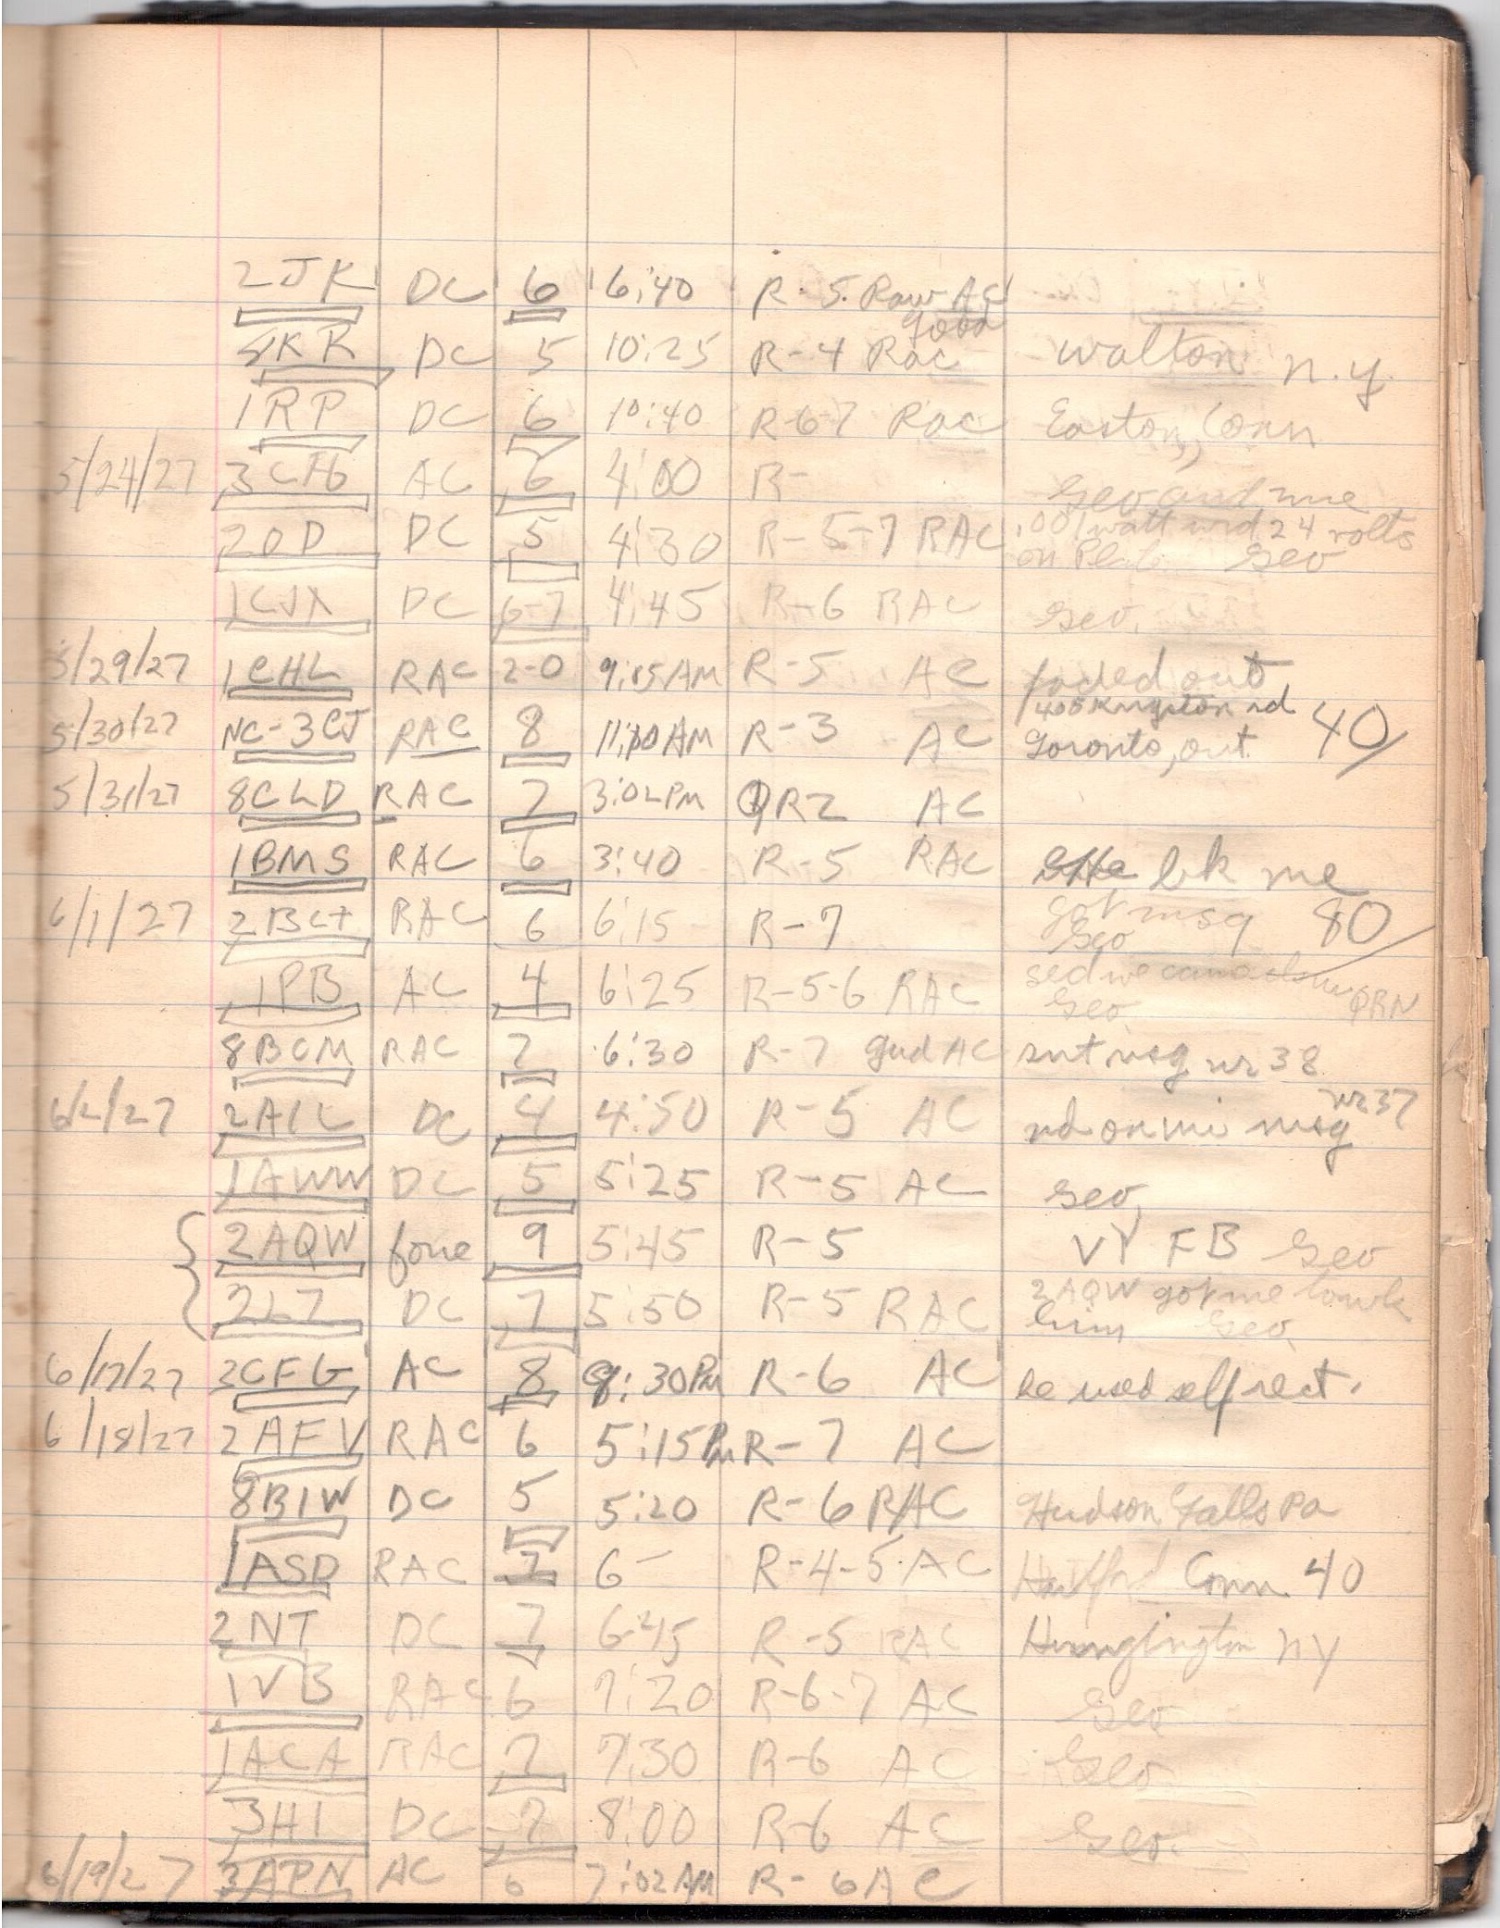 2JK DC 6 6:40 R-5. Raw AC
good
KR DC 5 10:25 R-4 Rac Walton n.y.
1RP DC 6 10:40 R-6-7 Rac Easton, Conn
5/24/27 3CFG AC 6 4:00 R- Geo and me
2OD DC 5 4:30 R-5-7 RAC .001 watt 24 volts
on Geo
1CJX DC 6-7 4:45 R-6 RAC Geo.
5/29/27 1CHL RAC 2-0 9:15 AM R-5 AC faded out
405 Kingston rd
5/30/27 NC-3CJ RAC 8 AM R-3 AC Toronto, ont. 40/
5/31/27 8CLD RAC 7 3:02 PM QRZ AC
1BMS RAC 6 3:40 R-5 RAC bk me
6/1/27 RAC 6 6:15 R-7 got msg 80/
Geo
1PB AC 4 6:25 R-5-6 RAC sed we came QRN
Geo.
8BCM RAC 7 6:30 R-7 gud AC snt msg nr 38
6/2/27 2AIL DC 4 4:50 R-5 AC nd on mi msg nr 37
1AWW DC 5 5:25 R-5 AC Geo,
2AQW fone 9 5:45 R-5 VY FB Geo
DC 7 5:50 R-5 RAC 2AQW got me to wk
him Geo
6/17/27 3CFG AC 8 30 PM R-6 AC he used self rect.
6/18/27 2AFV RAC 6 5:15 PM R-7 AC
8BIW DC 5 5:20 R-6 RAC Hudson Falls Pa
1ASD RAC 7 6- R-4-5. AC Hartford Conn. 40
2NT DC 7 6:45 R-5 RAC NY
1VB RAC 6 7:20 R-6-7 AC Geo
1ACA RAC 7 7:30 R-6 AC Geo
3HI DC 7 8:00 R-6 AC Geo.
6/19/27 3APN AC 6 7:02 AM R-6 AC